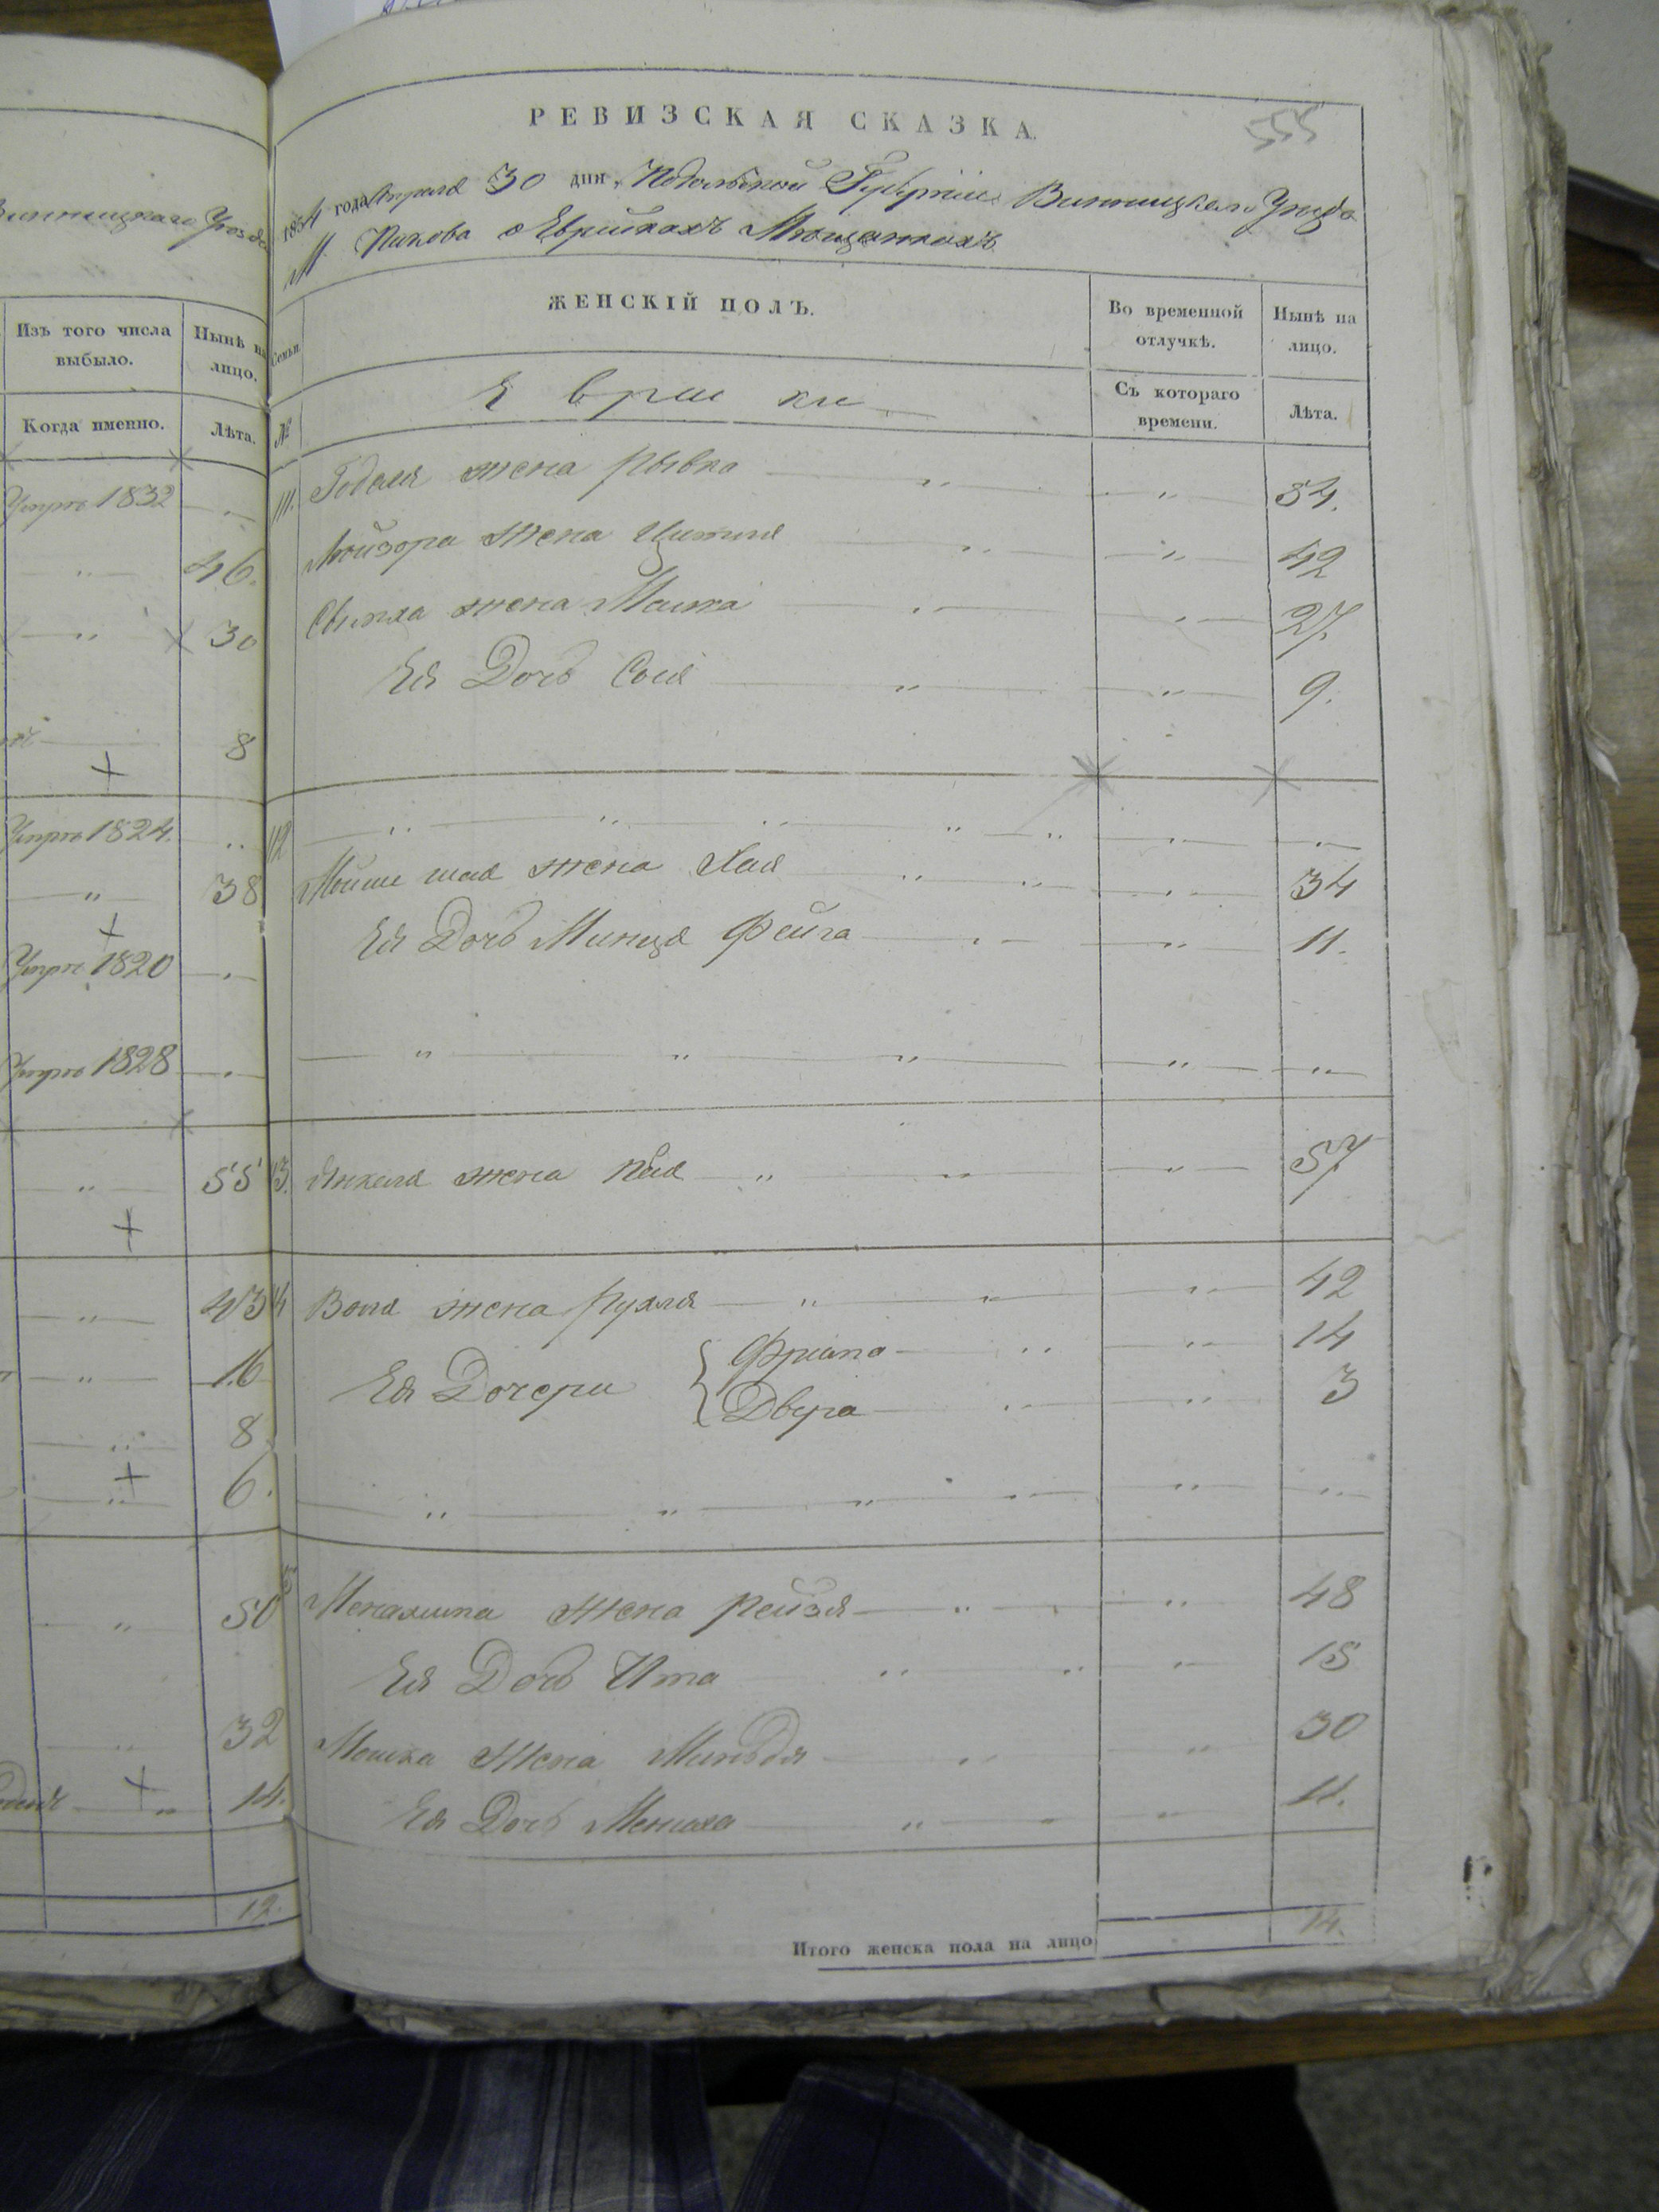 Винницкаго Уезда
Изъ того числа выбыло.
Нынѣ на лицо.
Когда именно.
Лѣта.
Умре 1832
46.
30
8
Умре 1824.
38
Умре 1820
Умре 1828
55
43
16
8
6.
50
32
14.
12.
РЕВИЗСКАЯ СКАЗКА.
555
1854 года Апреля 30 дня, Подольской Губернiи Винницкаго Уезда
М. Пикова о Еврейкахъ Мещанкахъ
Семьи.
ЖЕНСКIЙ ПОЛЪ.
Во временной отлучкѣ.
Нынѣ на лицо.
№
Еврейки
Съ котораго времени.
Лѣта.
111. Годеля жена Рывка 54.
Лейзора жена Ципия 42
жена Малка 27.
Ея Дочь Сося 9.
112
Мойше жена Хая 34
Ея Дочь Минця Фейга 11.
13. Янкеля жена Пея 57
14 жена Рухля 42
Ея Дочери
Фрима 14
Двера 3
15 жена Рейзя 48
Ея Дочь Ита 15
Мошка жена Миньдя 30
Ея Дочь Мениха 11.
Итого женска пола на лицо 14.